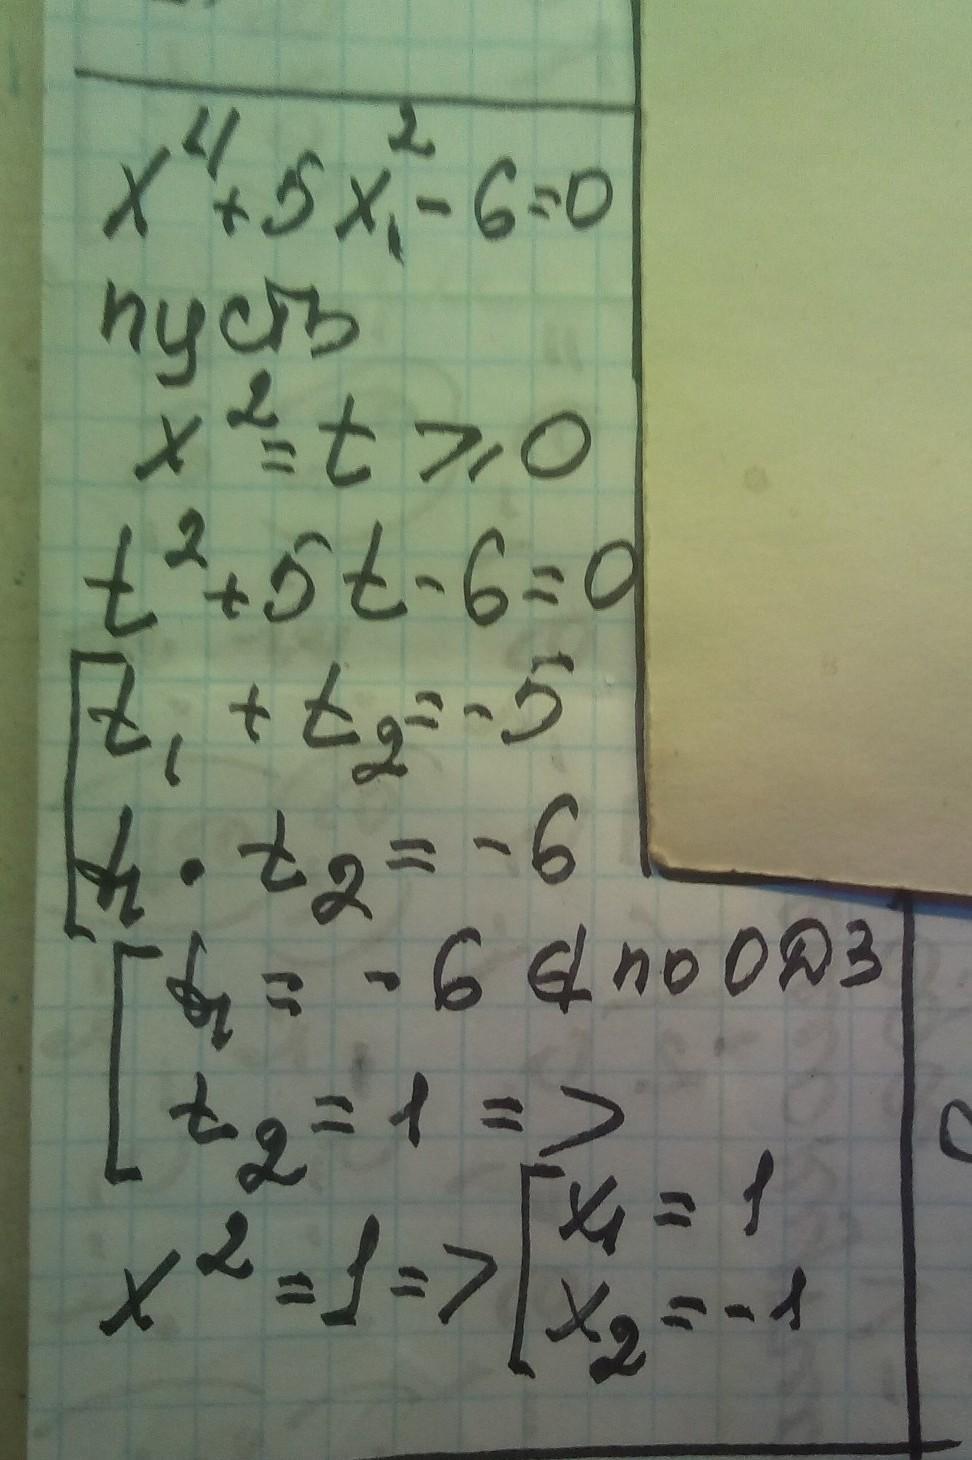 x⁴+5x₁²-6=0
пусть
x²=t⩾0
t²+5t-6=0
t₁+t₂=-5
t₁·t₂=-6
t₁=-6 ∉ по ОДЗ
t₂=1=>
x²=1=>[x₁=1
x₂=-1